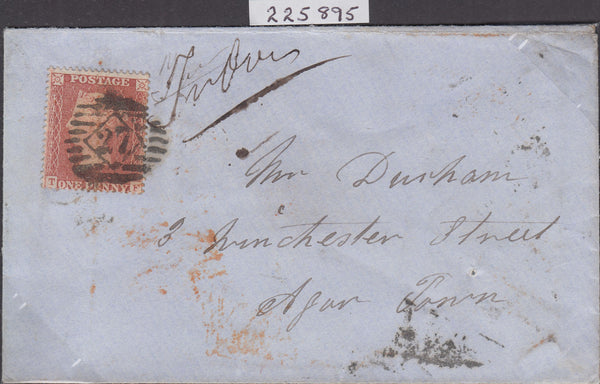 225895
POSTAGE
27
T ONE PENNY F
Mr Durham
3 Winchester Street
Agar Town